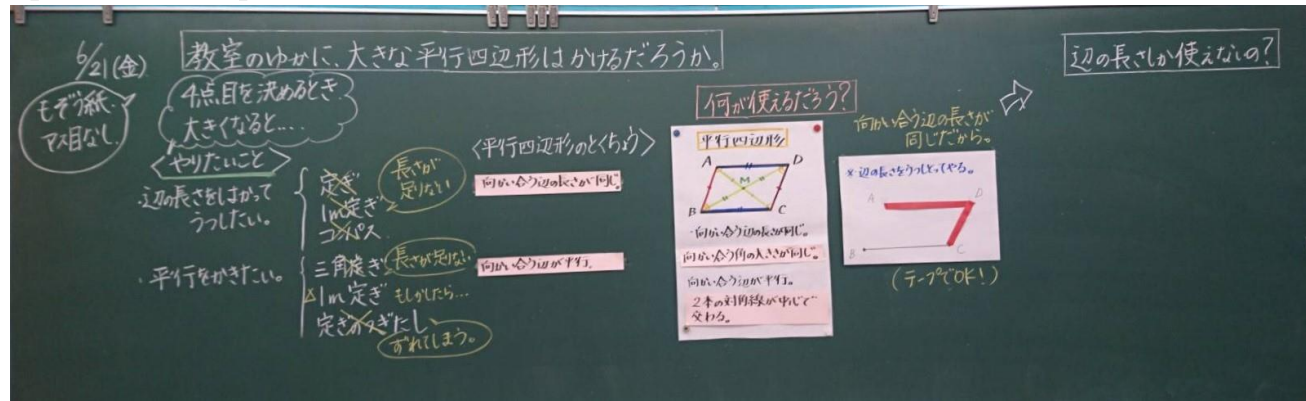 6/21(金)
教室のゆかに、大きな平行四辺形はかけるだろうか。
もぞう紙
マス目なし
4点目を決めるとき
大きくなると....
<やりたいこと>
・辺の長さをはかって
うつしたい。
定ぎ
1m定ぎ
コンパス
長さが
足りない
・平行をかきたい。
三角定ぎ
長さが足りない
△1m定ぎ もしかしたら...
定ぎのつぎたし
ずれてしまう。
<平行四辺形のとくちょう>
向かい合う辺の長さが同じ。
向かい合う辺が平行。
何が使えるだろう?
平行四辺形
A D
M
B C
・向かい合う辺の長さが同じ。
向かい合う角の大きさが同じ。
向かい合う辺が平行。
2本の対角線が中心で
交わる。
向かい合う辺の長さが
同じだから。
※辺の長さをうつしとってやる。
A D
B C
(テープでOK!)
辺の長さしか使えないの?